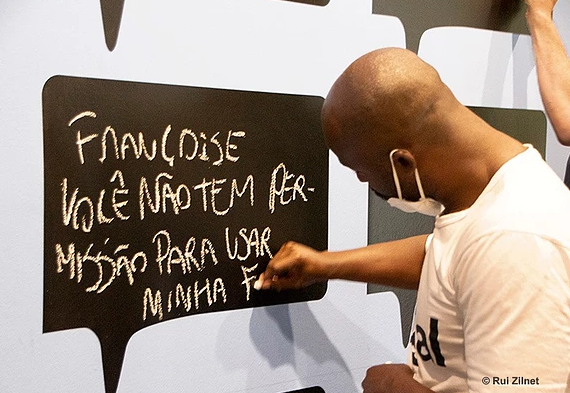 FRANÇOISE
VOCÊ NÃO TEM PER-
MISSÃO PARA USAR
MINHA F
al
© Rui Zilnet